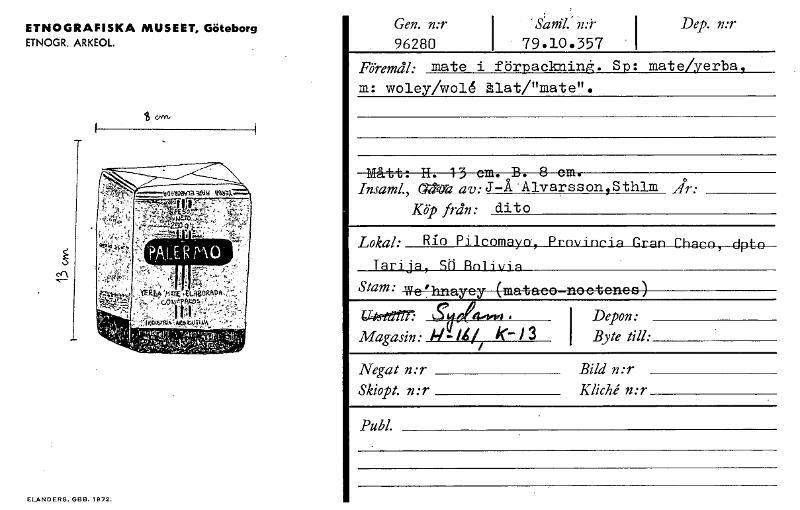 ETNOGRAFISKA MUSEET, Göteborg
ETNOGR. ARKEOL.
8 cm
13 cm
YERBA MATE ELABORADA
PESO
NETO
PALERMO
YERBA MATE ELABORADA
CON PALOS
INDUSTRIA ARGENTINA
ELANDERS, GBG. 1972.
Gen. n:r Saml. n:r Dep. n:r
96280 79.10.357
Föremål: mate i förpackning. Sp: mate/yerba,
m: woley/wolé ålat/"mate".
Mått: H. 13 cm. B. 8 cm.
Insaml., Gåva av: J-Å Alvarsson,Sthlm År:
Köp från: dito
Lokal: Río Pilcomayo, Provincia Gran Chaco, dpto
Tarija, SÖ Bolivia
Stam: We'hnayey (mataco-noctenes)
Utställt: Sydam. Depon:
Magasin: H-161, K-13 Byte till:
Negat n:r Bild n:r
Skiopt. n:r Kliché n:r
Publ.